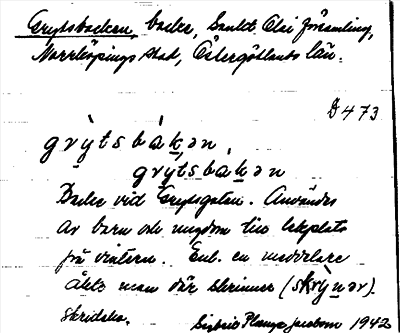 Grytsbacken, backe, Sankt Olai församling,
Norrköpings stad, Östergötlands län.
D 473
grỳtsbákən,
grỳtsbakən
Backe vid Grytsgatan. Användes
av barn och ungdom till lekplats
på vintern. Enl. en meddelare
åkte man där skrinner (skrỳnər).
Skridsko.
Sigbrit Plange Jacobson 1942